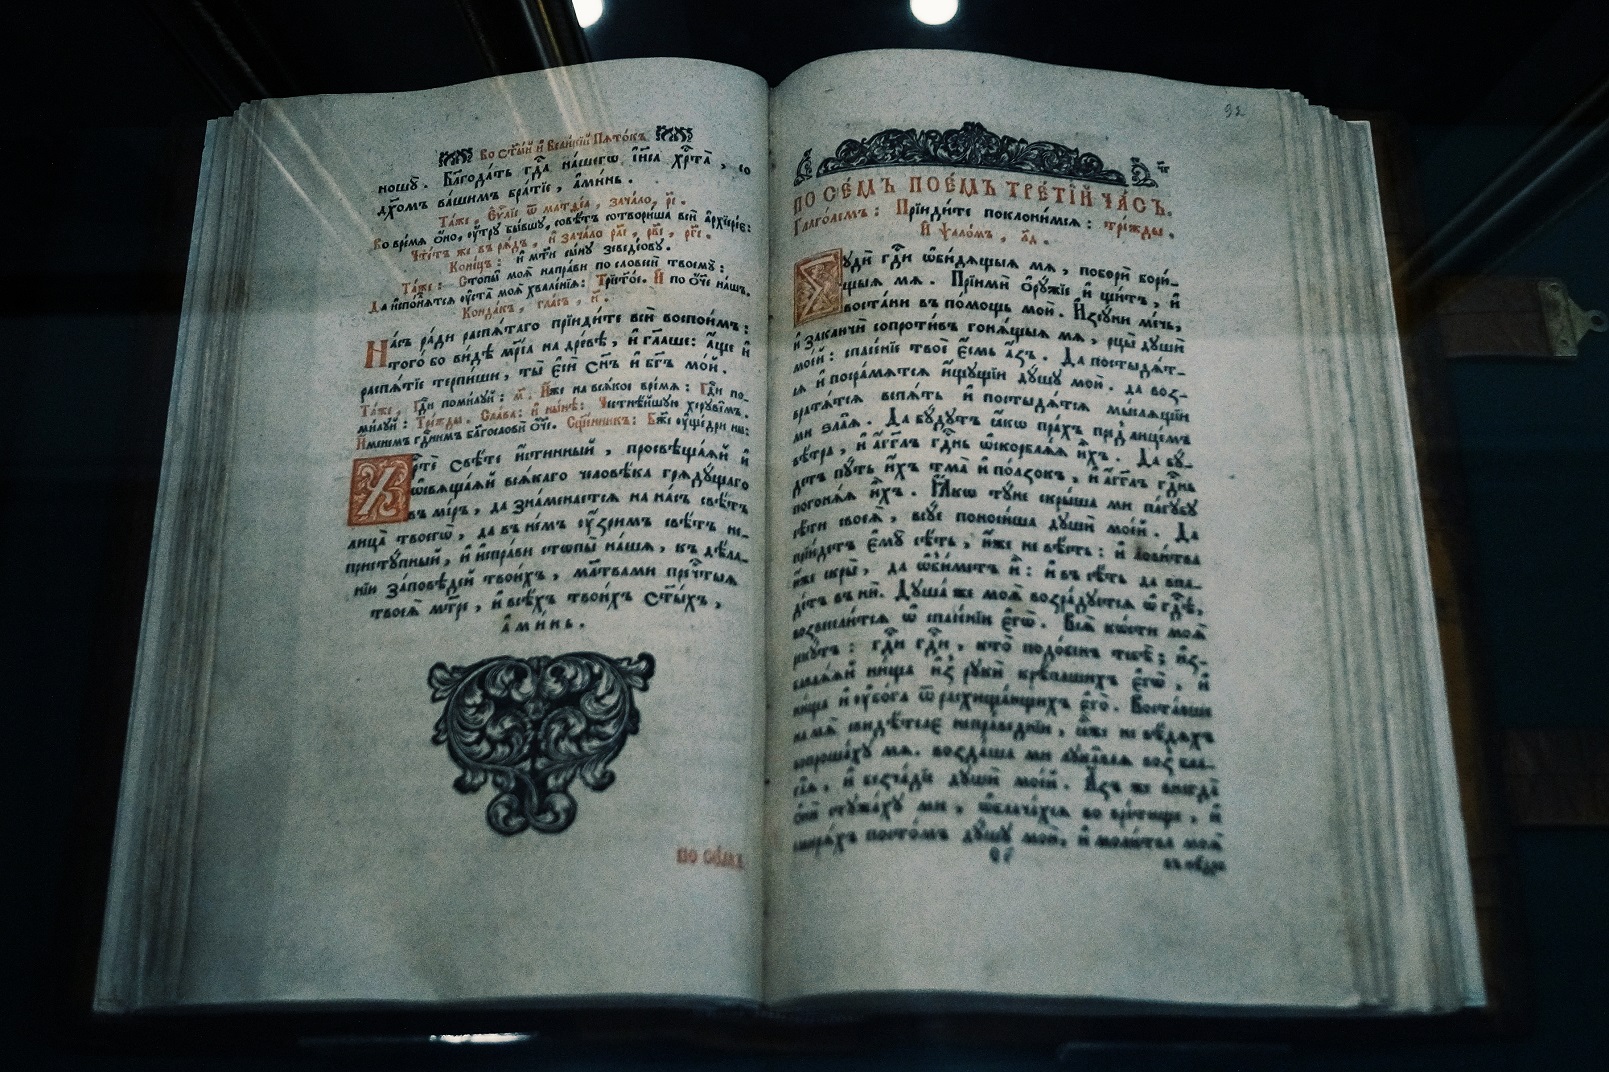 Во ст҃ы́й и҆ Вели́кїй Пѧто́къ
ношꙋ̀. Благода́ть гдⷭ҇а на́шегѡ і҆и҃са хрⷭ҇та̀, со
дх҃омъ ва́шимъ бра́тїе, а҆ми́нь.
Та́же, є҆ѵⷢ҇лїе ѿ матѳе́а, зача́ло, рі҃.
Во вре́мѧ ѻ҆́но, оу҆́трꙋ бы́вшꙋ, совѣ́тъ сотвори́ша всѝ а҆рхїере́є:
Чте́тъ же въ рѧ́дъ, и҆ зача́ло
Коне́цъ: и҆ мт҃и сы́нꙋ зеведе́овꙋ.
Та́же: Стопы̀ моѧ̑ напра́ви по словесѝ твоемꙋ̀:
Да и҆спо́лнѧтсѧ оу҆ста̀ моѧ̑ хвале́нїѧ: Трист҃о́е. И҆ по ѻ҆́ч҃е на́шъ.
Конда́къ, гла́съ, и҃.
На́съ ра́ди распѧ́таго прїиди́те всѝ воспои́мъ:
того́ бо ви́дѣ мр҃і́а на дре́вѣ, и҆ гл҃аше: а҆́ще и҆
распѧ́тїе терпи́ши, ты̀ є҆сѝ сн҃ъ и҆ бг҃ъ мо́й.
Та́же, Гдⷭ҇и поми́лꙋй: м҃. И҆́же на всѧ́кое вре́мѧ: Гдⷭ҇и по-
ми́лꙋй: Три́жды. Сла́ва: и҆ ны́нѣ: Честнѣ́йшꙋю херꙋві́мъ.
И҆́менемъ гдⷭ҇нимъ благословѝ ѻ҆́ч҃е. Сщ҃е́нникъ: Бж҃е оу҆ще́дри ны̀:
Хрⷭ҇тѐ свѣ́те и҆́стинный, просвѣща́ѧй и҆
ѡ҆свѧща́ѧй всѧ́каго человѣ́ка грѧдꙋ́щаго
въ мі́ръ, да зна́менаетсѧ на на́съ свѣ́тъ
лица̀ твоегѡ̀, да въ не́мъ оу҆́зримъ свѣ́тъ не-
пристꙋ́пный, и҆ и҆спра́ви стѡпы̀ на́шѧ, къ дѣ́ла-
нїи за́повѣдей твои́хъ, мл҃твами пречⷭ҇тыѧ
твоеѧ̀ мт҃ре, и҆ всѣ́хъ твои́хъ ст҃ы́хъ,
а҆ми́нь.
по се́мъ
92
ПО СЕ́МЪ ПОЕ́МЪ ТРЕ́ТЇЙ ЧА́СЪ.
Глаго́лемъ: Прїиди́те поклони́мсѧ: три́жды.
И҆ ѱало́мъ, л҃д.
Сꙋдѝ гдⷭ҇и ѡ҆би́дѧщыѧ мѧ̀, поборѝ борю́-
щыѧ мѧ̀. Прїимѝ ѻ҆рꙋ́жїе и҆ щи́тъ, и҆
воста́ни въ по́мощь мою̀. И҆зсꙋ́ни ме́чь,
и҆ заключѝ сопроти́въ гонѧ́щыѧ мѧ̀, рцы̀ дꙋшѝ
мое́й: спасе́нїе твоѐ є҆́смь а҆́зъ. Да постыдѧ́т-
сѧ и҆ посра́мѧтсѧ и҆́щꙋщїи дꙋ́шꙋ мою̀. да воз-
вратѧ́тсѧ вспѧ́ть и҆ постыдѧ́тсѧ мы́слѧщїи
ми ѕла̑ѧ. Да бꙋ́дꙋтъ ꙗ҆́кѡ пра́хъ пред̾ лице́мъ
вѣ́тра, и҆ а҆́гг҃лъ гдⷭ҇нь ѡ҆скорблѧ́ѧ и҆̀хъ. Да бꙋ́-
детъ пꙋ́ть и҆́хъ тма̀ и҆ по́лзокъ, и҆ а҆́гг҃лъ гдⷭ҇нь
погонѧ́ѧ и҆̀хъ. Ꙗ҆́кѡ тꙋ́не скры́ша ми па́гꙋбꙋ
сѣ́ти своеѧ̀, всꙋ́е поноси́ша дꙋшѝ мое́й. Да
прїи́детъ є҆мꙋ̀ сѣ́ть, ю҆́же не вѣ́сть: и҆ лови́тва
ю҆́же скры̀, да ѡ҆б̾и́метъ и҆̀: и҆ въ сѣ́ть да впа-
де́тъ въ ню̀. Дꙋша́ же моѧ̀ возра́дꙋетсѧ ѡ҆ гдⷭ҇ѣ,
возвесели́тсѧ ѡ҆ спасе́нїи є҆гѡ̀. Всѧ̑ кѡ́сти моѧ̑
рекꙋ́тъ: гдⷭ҇и гдⷭ҇и, кто̀ подо́бенъ тебѣ̀; и҆з-
бавлѧ́ѧй ни́ща и҆з̾ рꙋкѝ крѣ́пльшихъ є҆гѡ̀, и҆
ни́ща и҆ оу҆бо́га ѿ расхища́ющихъ є҆го̀. Воста́вше
на мѧ̀ свидѣ́телє непра́веднїи, ꙗ҆̀же не вѣ́дѧхъ
вопроша́хꙋ мѧ̀. возда́ша ми лꙋка́ваѧ воз̾ бла-
га̑ѧ, и҆ безча́дїе дꙋшѝ мое́й. А҆́зъ же внегда̀
ѻ҆нѝ стꙋжа́хꙋ ми, ѡ҆блача́хсѧ во вре́тище, и҆
смирѧ́хъ посто́мъ дꙋ́шꙋ мою̀, и҆ моли́тва моѧ̀
въ нѣ́дро